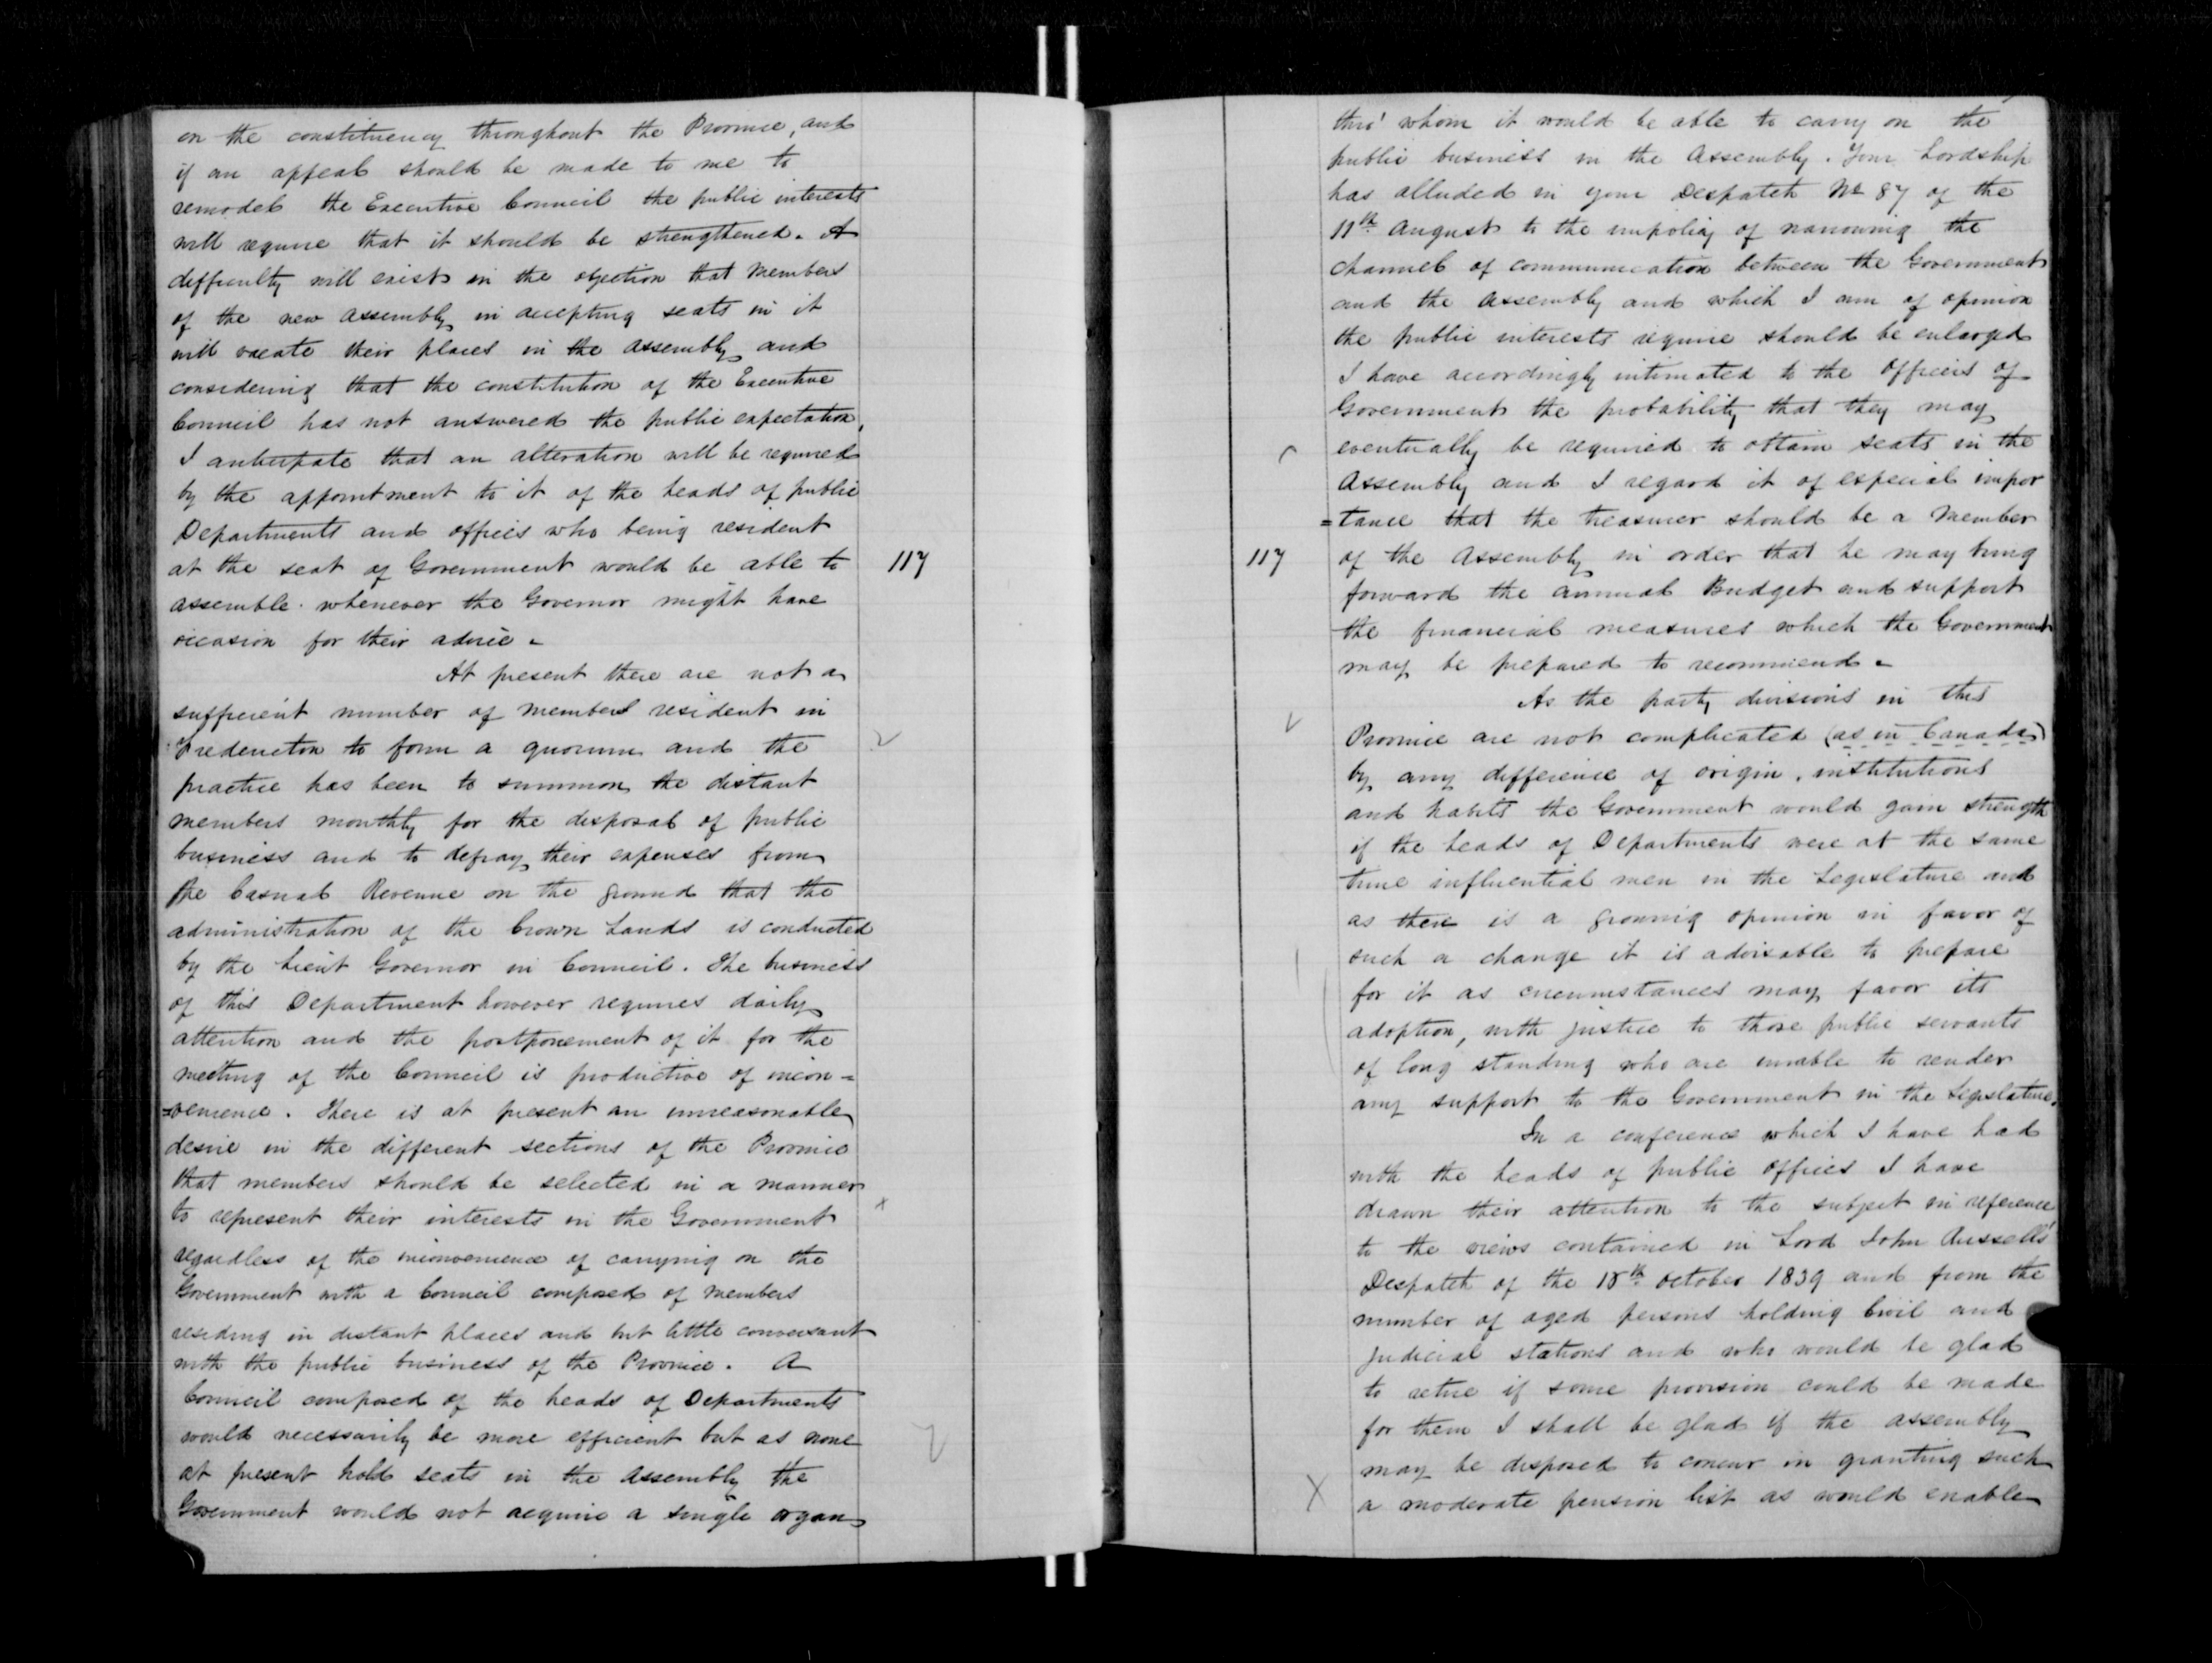 on the constituency throughout the Province, and
if an appeal should be made to me to
remodel the Executive Council the public interests
will require that it should be strengthened. A
difficulty will exist in the objection that members
of the new Assembly in accepting seats in it
will vacate their places in the Assembly and
considering that the constitution of the Executive
Council has not answered the public expectation,
I anticipate that an alteration will be required
by the appointment to it of the heads of public
Departments and offices who being resident
at the seat of Government would be able to
assemble whenever the Governor might have
occasion for their advice -
117
At present there are not a
sufficient number of members resident in
Fredericton to form a quorum and the
practice has been to summon the distant
members monthly for the disposal of public
business and to defray their expenses from
the Casual Revenue on the ground that the
administration of the Crown Lands is conducted
by the Lieut Governor in Council. The business
of this Department however requires daily
attention and the postponement of it for the
meeting of the Council is productive of incon=
=venience. There is at present an unreasonable
desire in the different sections of the Province
that members should be selected in a manner
to represent their interests in the Government
x
regardless of the inconvenience of carrying on the
Government with a Council composed of members
residing in distant places and but little conversant
with the public business of the Province. A
Council composed of the heads of Departments
would necessarily be more efficient but as none
at present hold seats in the Assembly the
Government would not acquire a single organ
thro' whom it would be able to carry on the
public business in the Assembly. Your Lordship
has alluded in your Despatch No 87 of the
11th August to the impolicy of narrowing the
channel of communication between the Government
and the Assembly and which I am of opinion
the public interests require should be enlarged
I have accordingly intimated to the Officers of
Government the probability that they may
eventually be required to obtain seats in the
Assembly and I regard it of especial impor
=tance that the treasurer should be a Member
117
of the Assembly in order that he may bring
forward the annual Budget and support
the financial measures which the Government
may be prepared to recommend -
As the party divisions in this
Province are not complicated (as in Canada)
by any difference of origin, institutions
and habits the Government would gain strength
if the heads of Departments were at the same
time influential men in the Legislature and
as there is a growing opinion in favor of
such a change it is advisable to prepare
for it as circumstances may favor its
adoption, with justice to those public servants
of long standing who are unable to render
any support to the Government in the Legislature.
In a conference which I have had
with the heads of public offices I have
drawn their attention to the subject in reference
to the views contained in Lord John Russells'
Despatch of the 18th October 1839 and from the
number of aged persons holding Civil and
Judicial stations and who would be glad
to retire if some provision could be made
for them I shall be glad if the Assembly
may be disposed to concur in granting such
X
a moderate pension list as would enable